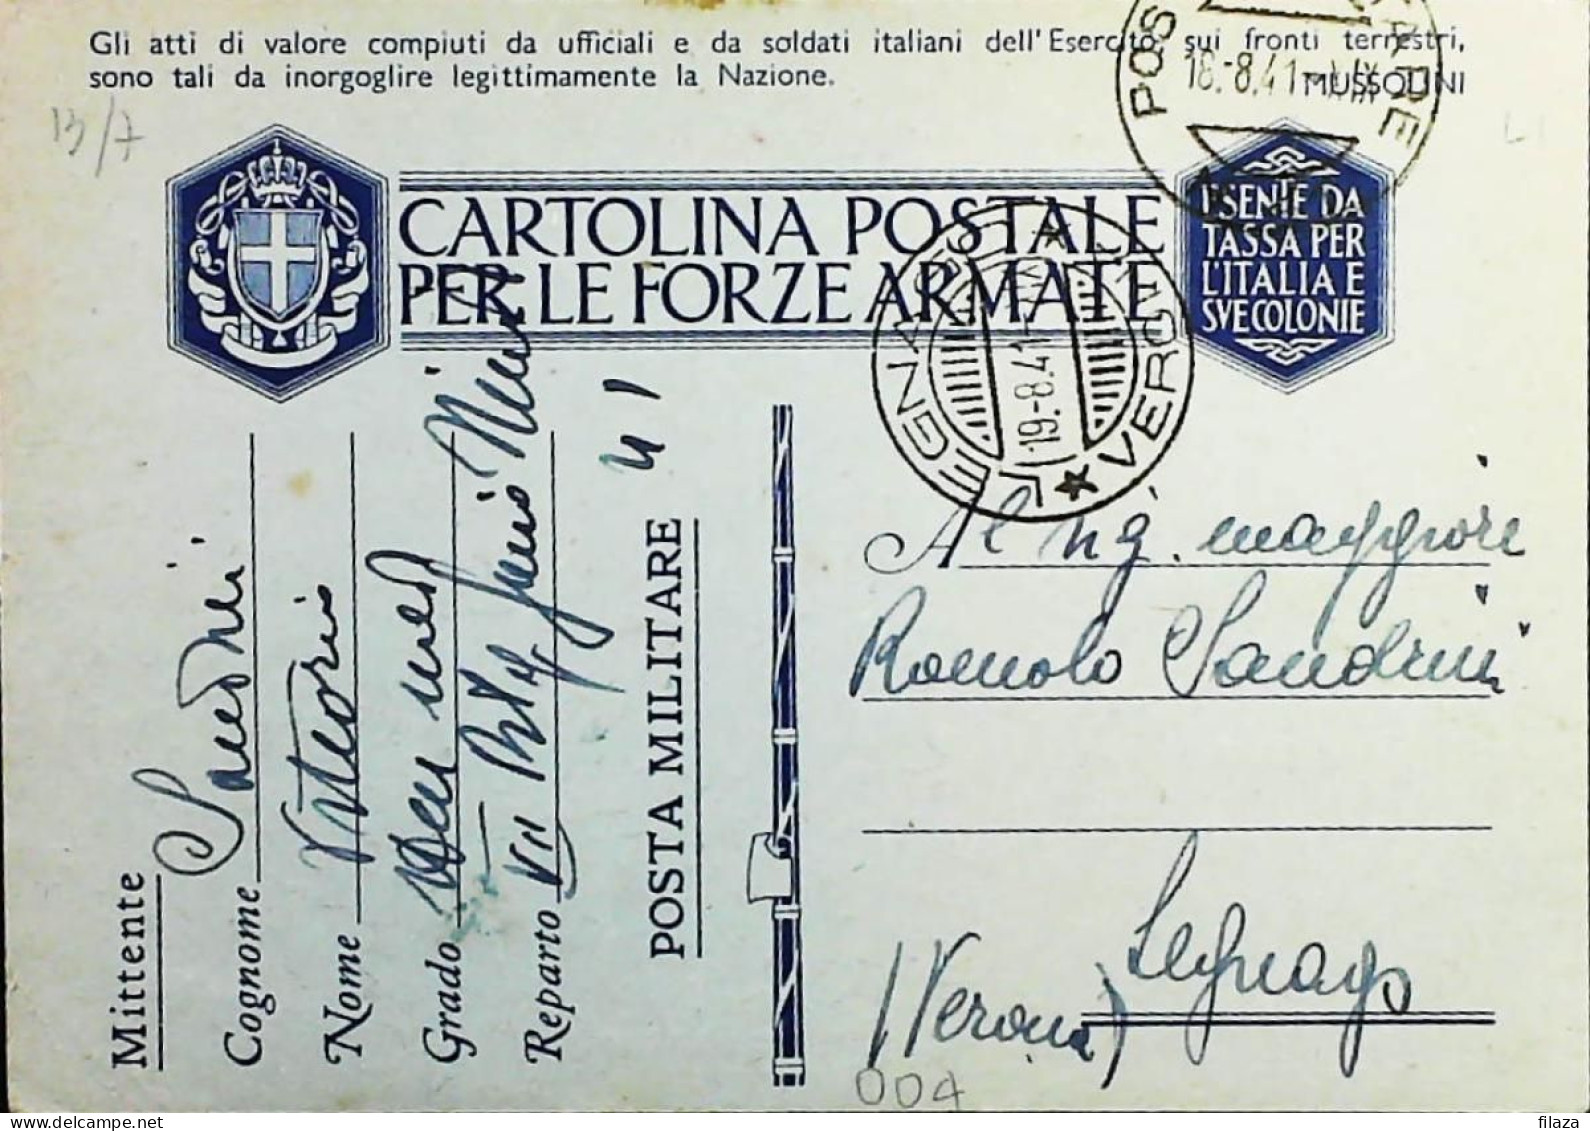 Gli atti di valore compiuti da ufficiali e da soldati italiani dell'Esercito, sui fronti terrestri,
sono tali da inorgoglire legittimamente la Nazione. MUSSOLINI
13/7
POS ARE
18.-8.41
CARTOLINA POSTALE
PER LE FORZE ARMATE
ESENTE DA
TASSA PER
L'ITALIA E
SVE COLONIE
LEGNAGO VERONA
19.-8.41
Mittente
Cognome Sandrini
Nome Vittorio
Grado
Reparto VII
POSTA MILITARE 41
Al Sig. maggiore
Romolo Sandrini
Legnago
(Verona)
004
filaza